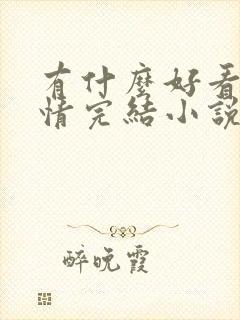 有什麼好看
情完結小說
醉晚霞